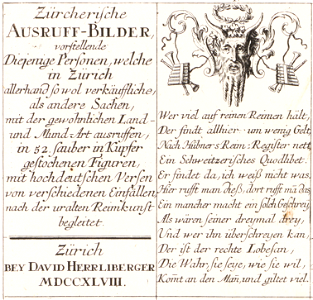 Zürcherische
AUSRUFF-BILDER,
vorstellende
Diejenige Personen, welche
in Zürich
allerhand so wol verkäuffliche,
als andere Sachen,
mit der gewohnlichen Land-
und Mund-Art ausruffen,
in 52. sauber in Kupfer
gestochenen Figuren,
mit hochdeutschen Versen
von verschiedenen Einfällen
nach der uralten Reimkunst
begleitet.
Zürich
BEY DAVID HERRLIBERGER
MDCCXLVIII.
Wer viel auf reinen Reimen hält,
Der findt allhier um wenig Gelt,
Nach Hübners Reim-Register nett
Ein Schweitzerisches Quodlibet.
Er findet da, ich weiß nicht was,
Hier rufft man dieß, dort rufft mã das,
Ein mancher macht ein solch Geschrey,
Als wären seiner dreymal drey,
Und wer ihn überschreyen kan,
Der ist der rechte Lobesan,
Die Wahr sie seye, wie sie wil,
Kom̃t an den Mañ, und giltet viel.